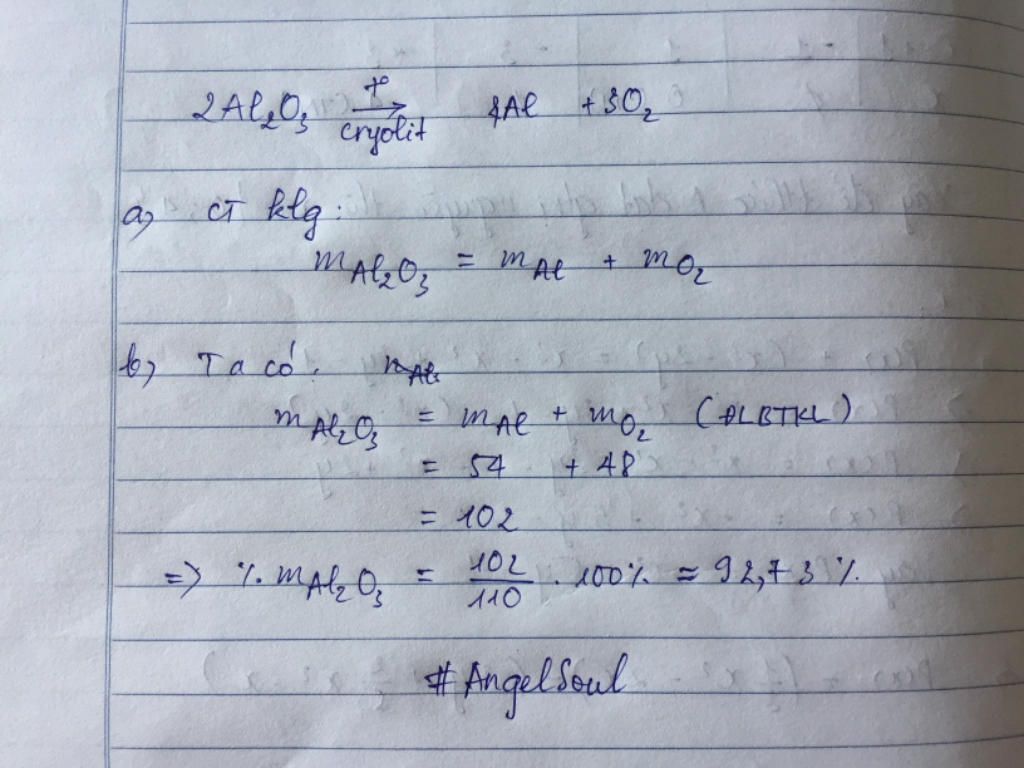 2Al₂O₃ t° → cryolit 4Al + 3O₂
a) CT klg:
mAl₂O₃ = mAl + mO₂
b) Ta có:
mAl₂O₃ = mAl + mO₂ (ĐLBTKL)
= 54 + 48
= 102
=> % mAl₂O₃ = 102/110 . 100% ≈ 92,73 %
#AngelSoul